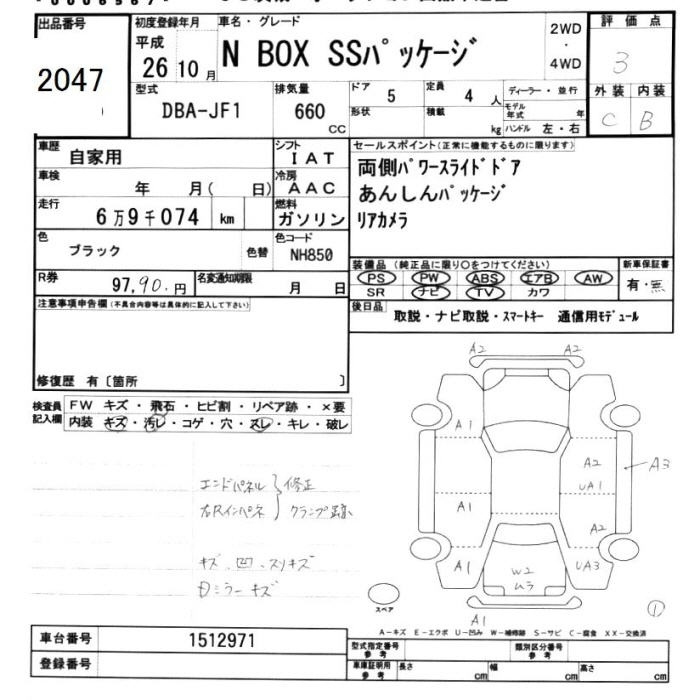 出品番号 初度登録年月 車名・グレード 2WD 評価点
2047 平成 26 10月 N BOX SSパッケージ ・ 4WD 3
型式 排気量 ドア 5 定員 4 人 ディーラー・並行 外装 内装
DBA-JF1 660 CC 形状 積載 kg モデル年式 年 ハンドル 左・右 C B
車歴 自家用 シフト IAT セールスポイント(正常に機能するものに限ります)
車検 年 月( 日) 冷房 AAC 両側パワースライドドア
走行 6万9千074 km 燃料 ガソリン あんしんパッケージ
リアカメラ
色 ブラック 色替 色コード NH850
装備品 (純正品に限り〇をつけてください) 新車保証書
R券 97,90.円 名変通知期限 月 日 PS PW ABS エアB AW 有・無
SR ナビ TV カワ
注意事項申告欄(不具合内容等は具体的に記入して下さい)
後日品 取説・ナビ取説・スマートキー 通信用モデュール
修復歴 有〔箇所 〕
検査員記入欄 FW キズ・飛石・ヒビ割・リペア跡・×要
内装 キズ・汚レ・コゲ・穴・スレ・キレ・破レ
A2 A2
A1 A2 A3
UA1
A1 A2
A1 W2 ムラ UA3
A1
エンドパネル 修正
右Rインパネ クランプ跡
キズ、凹、スリキズ
Dミラーキズ
スペア
①
A-キズ E-エクボ U-凹み W-補修跡 S-サビ C-腐食 XX-交換済
車台番号 1512971 型式指定番号 参考 類別区分番号 参考
登録番号 車庫証明用 参考 長さ cm 幅 cm 高さ cm